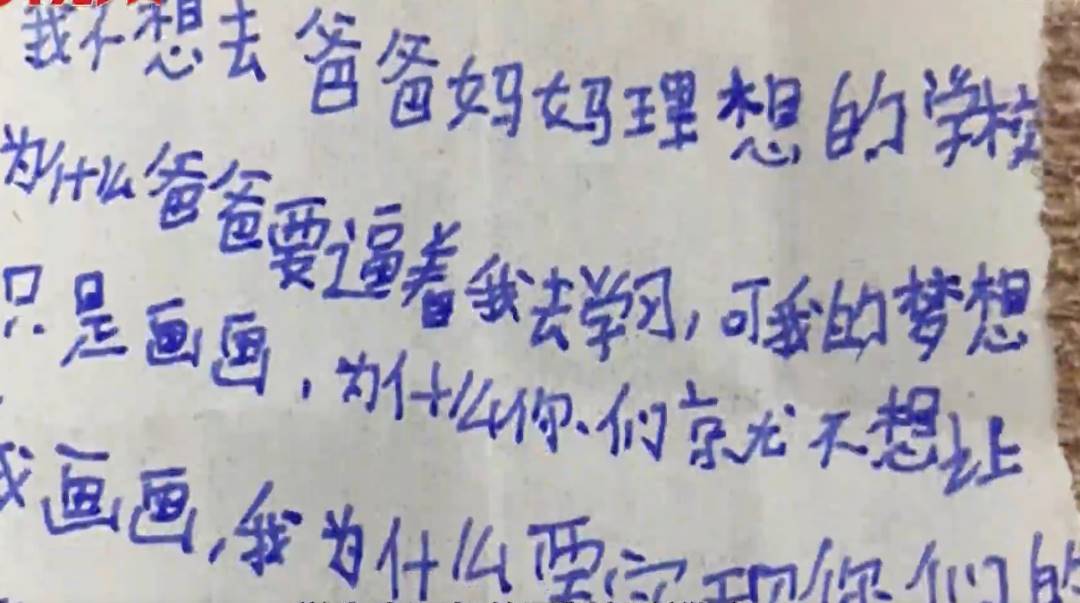 我不想去爸爸妈妈理想的学校
为什么爸爸要逼着我去学习,可我的梦想
只是画画,为什么你们就不想让
我画画,我为什么要实现你们的